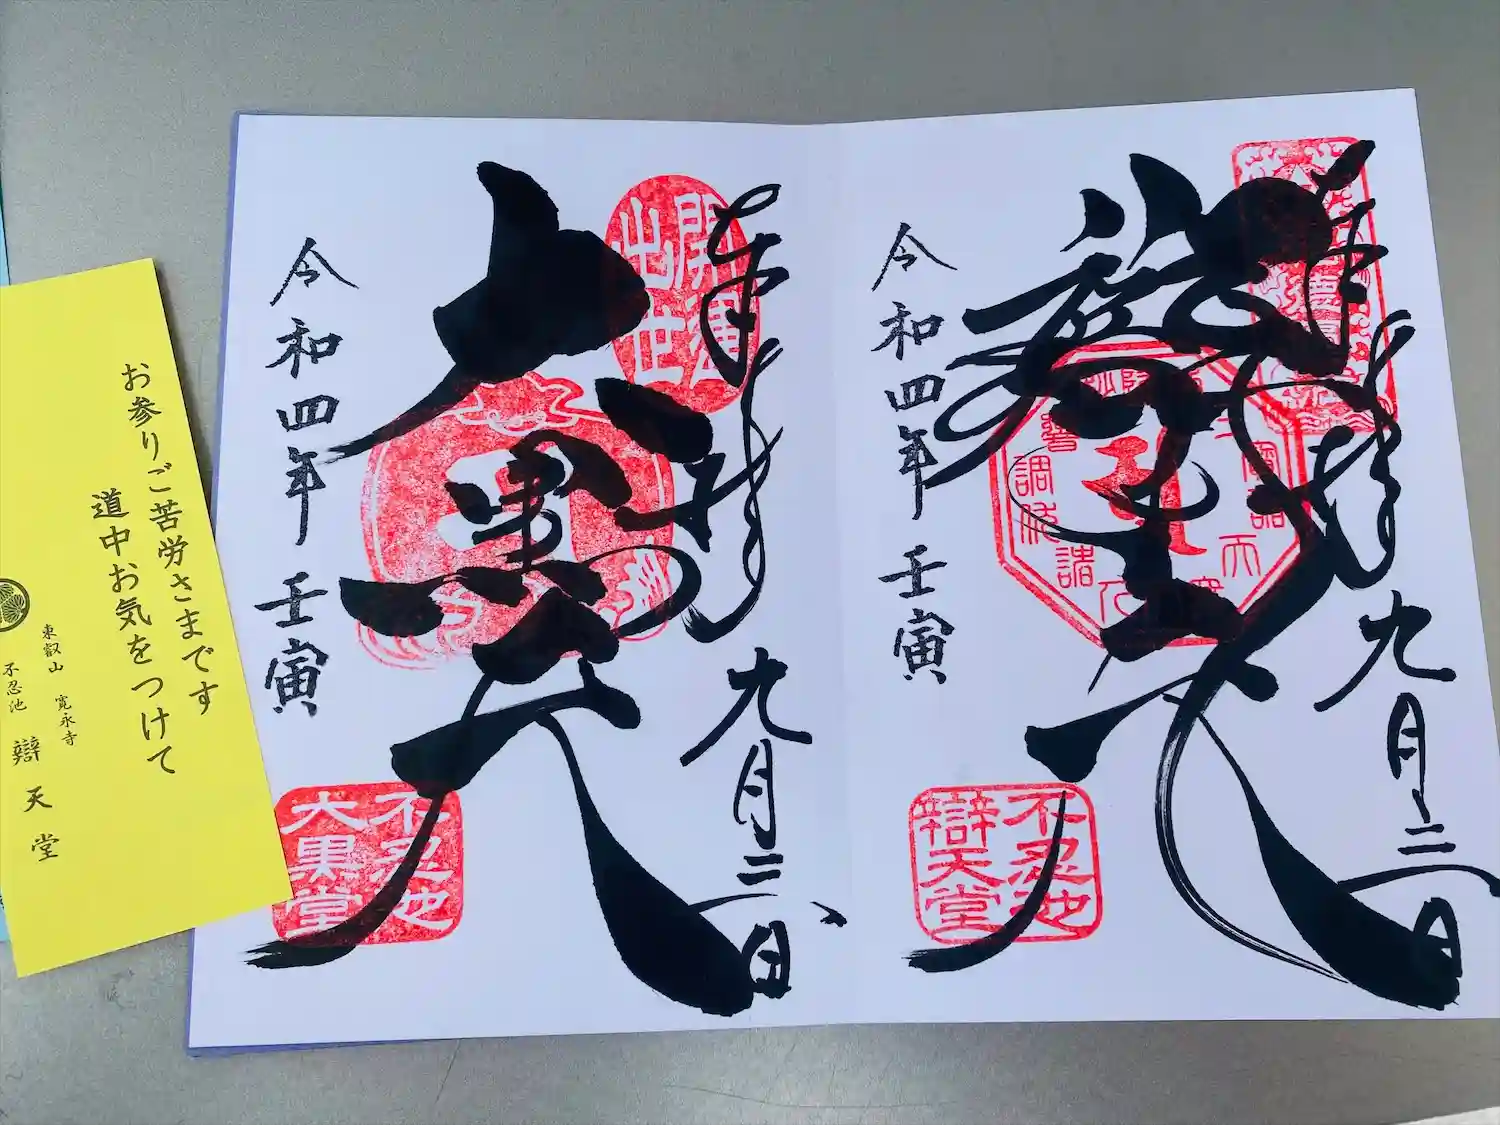 奉拝
九月二日
辯才天
令和四年
壬寅
不忍池
辯天堂
奉拝
九月二日
開運
出世
大黒天
令和四年
壬寅
不忍池
大黒堂
お参りご苦労さまです
道中お気をつけて
東叡山 寛永寺
不忍池
辯天堂